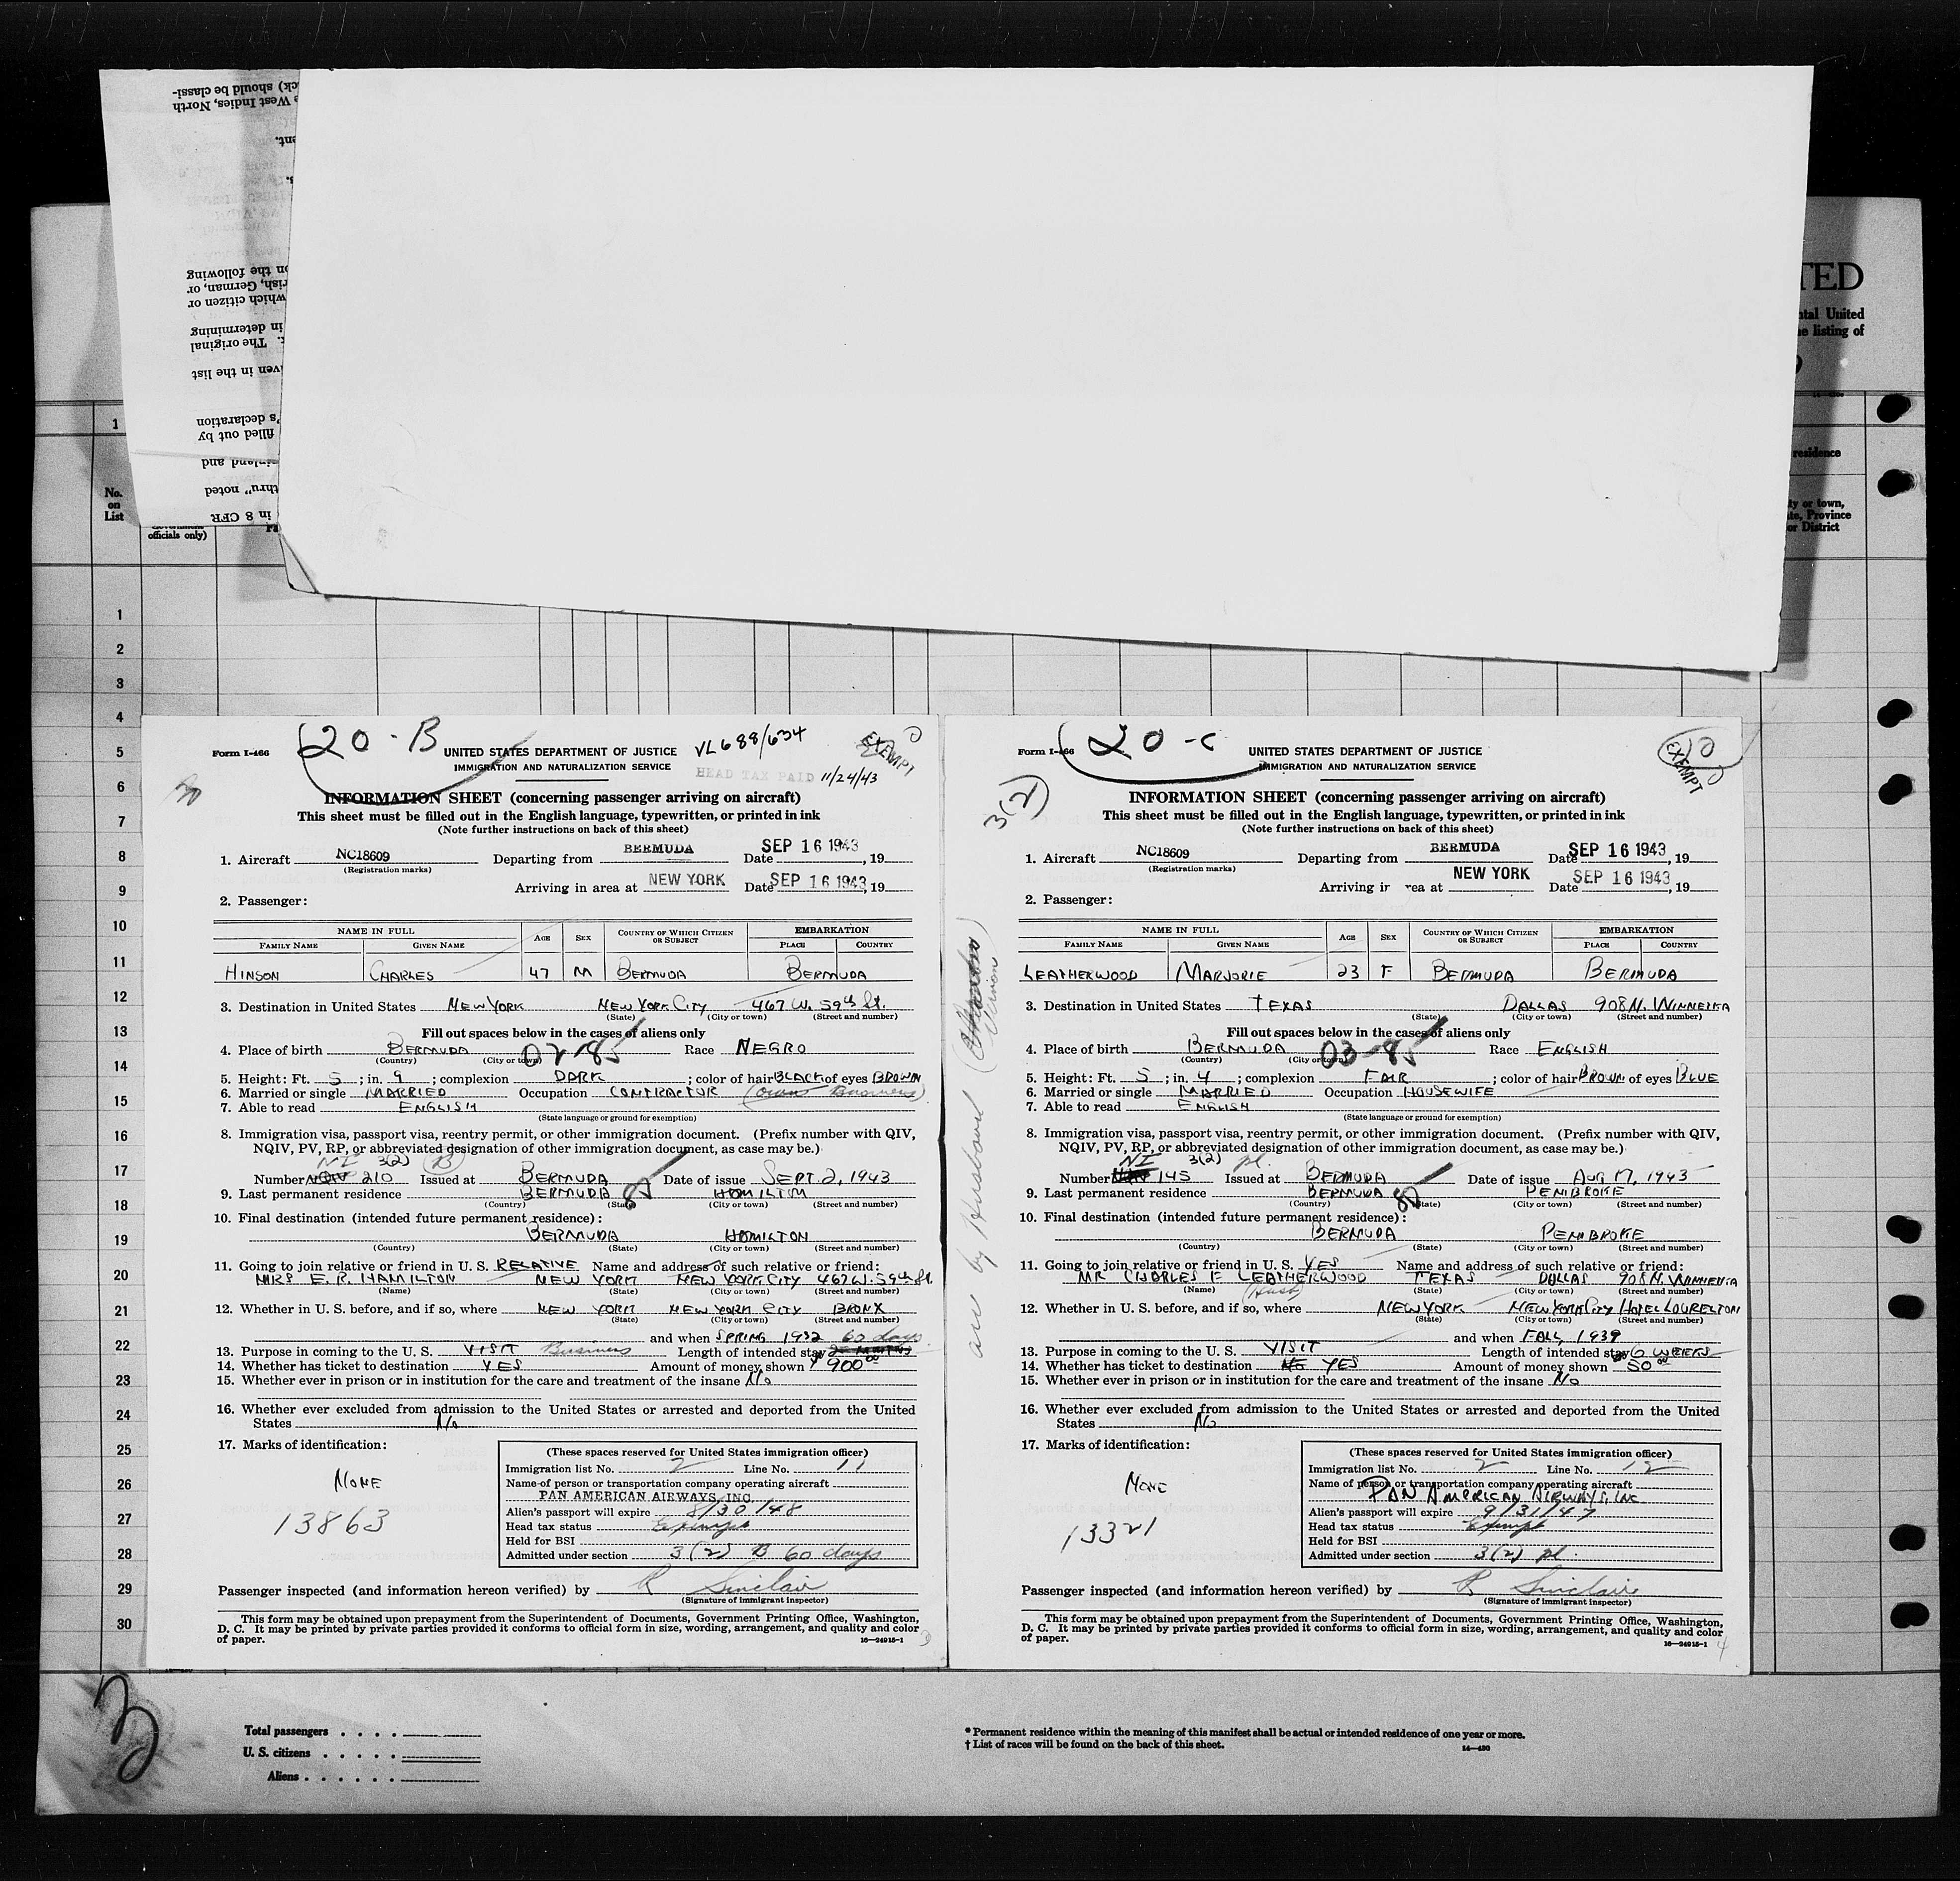 ck) should be classi-
e West Indies, North
ent.
s.
on the following
rish, German, or
which citizen or
in determining
t. The original
ven in the list
's declaration
filled out by
inland and
thru" noted
in 8 CFR
TED
ntal United
he listing of
residence
ty or town,
te, Province
or District
1
No.
on
List
officials only)
1
2
3
4
5
6
7
8
9
10
11
12
13
14
15
16
17
18
19
20
21
22
23
24
25
26
27
28
29
30
Form I-466
20 - B
UNITED STATES DEPARTMENT OF JUSTICE
VL 688/634
EXEMPT
IMMIGRATION AND NATURALIZATION SERVICE
HEAD TAX PAID 11/24/43
INFORMATION SHEET (concerning passenger arriving on aircraft)
This sheet must be filled out in the English language, typewritten, or printed in ink
(Note further instructions on back of this sheet)
1. Aircraft NC18609 Departing from BERMUDA Date SEP 16 1943, 19
(Registration marks)
Arriving in area at NEW YORK Date SEP 16 1943, 19
2. Passenger:
NAME IN FULL AGE SEX COUNTRY OF WHICH CITIZEN OR SUBJECT EMBARKATION
FAMILY NAME GIVEN NAME PLACE COUNTRY
HINSON CHARLES 47 M BERMUDA BERMUDA
3. Destination in United States NEW YORK NEW YORK CITY 467 W. 59th St.
(State) (City or town) (Street and number)
Fill out spaces below in the cases of aliens only
4. Place of birth BERMUDA 02-85 Race NEGRO
(Country) (City or town)
5. Height: Ft. 5; in. 9; complexion DARK; color of hair BLACK of eyes BROWN
6. Married or single MARRIED Occupation CONTRACTOR (Own Business)
7. Able to read ENGLISH
(State language or ground for exemption)
8. Immigration visa, passport visa, reentry permit, or other immigration document. (Prefix number with QIV,
NQIV, PV, RP, or abbreviated designation of other immigration document, as case may be.)
NI 3(2) B
Number 210 Issued at BERMUDA Date of issue SEPT. 2, 1943
9. Last permanent residence BERMUDA 85 HAMILTON
(Country) (State) (City or town) (Street and number)
10. Final destination (intended future permanent residence):
BERMUDA HAMILTON
(Country) (State) (City or town) (Street and number)
11. Going to join relative or friend in U. S. RELATIVE Name and address of such relative or friend:
MRS E. R. HAMILTON NEW YORK NEW YORK CITY 467 W. 59th St.
(Name) (State) (City or town) (Street and number)
12. Whether in U. S. before, and if so, where NEW YORK NEW YORK CITY BRONX
(State) (City or town) (Street and number)
and when SPRING 1932 60 days
13. Purpose in coming to the U. S. VISIT Business Length of intended stay 2 MONTHS
14. Whether has ticket to destination YES Amount of money shown $900.00
15. Whether ever in prison or in institution for the care and treatment of the insane No
16. Whether ever excluded from admission to the United States or arrested and deported from the United
States No
17. Marks of identification:
NONE
13863
(These spaces reserved for United States immigration officer)
Immigration list No. 2 Line No. 11
Name of person or transportation company operating aircraft
PAN AMERICAN AIRWAYS, INC.
Alien's passport will expire 8/30/48
Head tax status Exempt
Held for BSI
Admitted under section 3(2) B 60 days
Passenger inspected (and information hereon verified) by R Sinclair
(Signature of immigrant inspector)
This form may be obtained upon prepayment from the Superintendent of Documents, Government Printing Office, Washington,
D. C. It may be printed by private parties provided it conforms to official form in size, wording, arrangement, and quality and color
of paper. 16—24915-1
3
Form I-466
20 - C
UNITED STATES DEPARTMENT OF JUSTICE
EXEMPT
IMMIGRATION AND NATURALIZATION SERVICE
3(2)
INFORMATION SHEET (concerning passenger arriving on aircraft)
This sheet must be filled out in the English language, typewritten, or printed in ink
(Note further instructions on back of this sheet)
1. Aircraft NC18609 Departing from BERMUDA Date SEP 16 1943, 19
(Registration marks)
Arriving in area at NEW YORK Date SEP 16 1943, 19
2. Passenger:
NAME IN FULL AGE SEX COUNTRY OF WHICH CITIZEN OR SUBJECT EMBARKATION
FAMILY NAME GIVEN NAME PLACE COUNTRY
LEATHERWOOD MARJORIE 23 F BERMUDA BERMUDA
3. Destination in United States TEXAS DALLAS 908 N. WINNETKA
(State) (City or town) (Street and number)
Fill out spaces below in the cases of aliens only
4. Place of birth BERMUDA 03-85 Race ENGLISH
(Country) (City or town)
5. Height: Ft. 5; in. 4; complexion FAIR; color of hair BROWN of eyes BLUE
6. Married or single MARRIED Occupation HOUSEWIFE
7. Able to read ENGLISH
(State language or ground for exemption)
8. Immigration visa, passport visa, reentry permit, or other immigration document. (Prefix number with QIV,
NQIV, PV, RP, or abbreviated designation of other immigration document, as case may be.)
NI 3(2) pl.
Number 145 Issued at BERMUDA Date of issue AUG 17, 1943
9. Last permanent residence BERMUDA 85 PEMBROKE
(Country) (State) (City or town) (Street and number)
10. Final destination (intended future permanent residence):
BERMUDA PEMBROKE
(Country) (State) (City or town) (Street and number)
11. Going to join relative or friend in U. S. YES Name and address of such relative or friend:
MR CHARLES F LEATHERWOOD TEXAS DALLAS 908 N. WINNETKA
(Name) (Husb) (State) (City or town) (Street and number)
12. Whether in U. S. before, and if so, where NEW YORK NEW YORK CITY HOTEL LOURELTON
(State) (City or town) (Street and number)
and when FALL, 1939
13. Purpose in coming to the U. S. VISIT Length of intended stay 6 WEEKS
14. Whether has ticket to destination YES Amount of money shown 50.00
15. Whether ever in prison or in institution for the care and treatment of the insane No
16. Whether ever excluded from admission to the United States or arrested and deported from the United
States No
17. Marks of identification:
NONE
13321
(These spaces reserved for United States immigration officer)
Immigration list No. 2 Line No. 12
Name of person or transportation company operating aircraft
PAN AMERICAN AIRWAYS, INC
Alien's passport will expire 9/31/47
Head tax status Exempt
Held for BSI
Admitted under section 3(2) pl.
Passenger inspected (and information hereon verified) by R Sinclair
(Signature of immigrant inspector)
This form may be obtained upon prepayment from the Superintendent of Documents, Government Printing Office, Washington,
D. C. It may be printed by private parties provided it conforms to official form in size, wording, arrangement, and quality and color
of paper. 16—24915-1
4
by Husband
Total passengers . . . .
U. S. citizens . . . . .
Aliens . . . . . .
* Permanent residence within the meaning of this manifest shall be actual or intended residence of one year or more.
† List of races will be found on the back of this sheet.
14—480